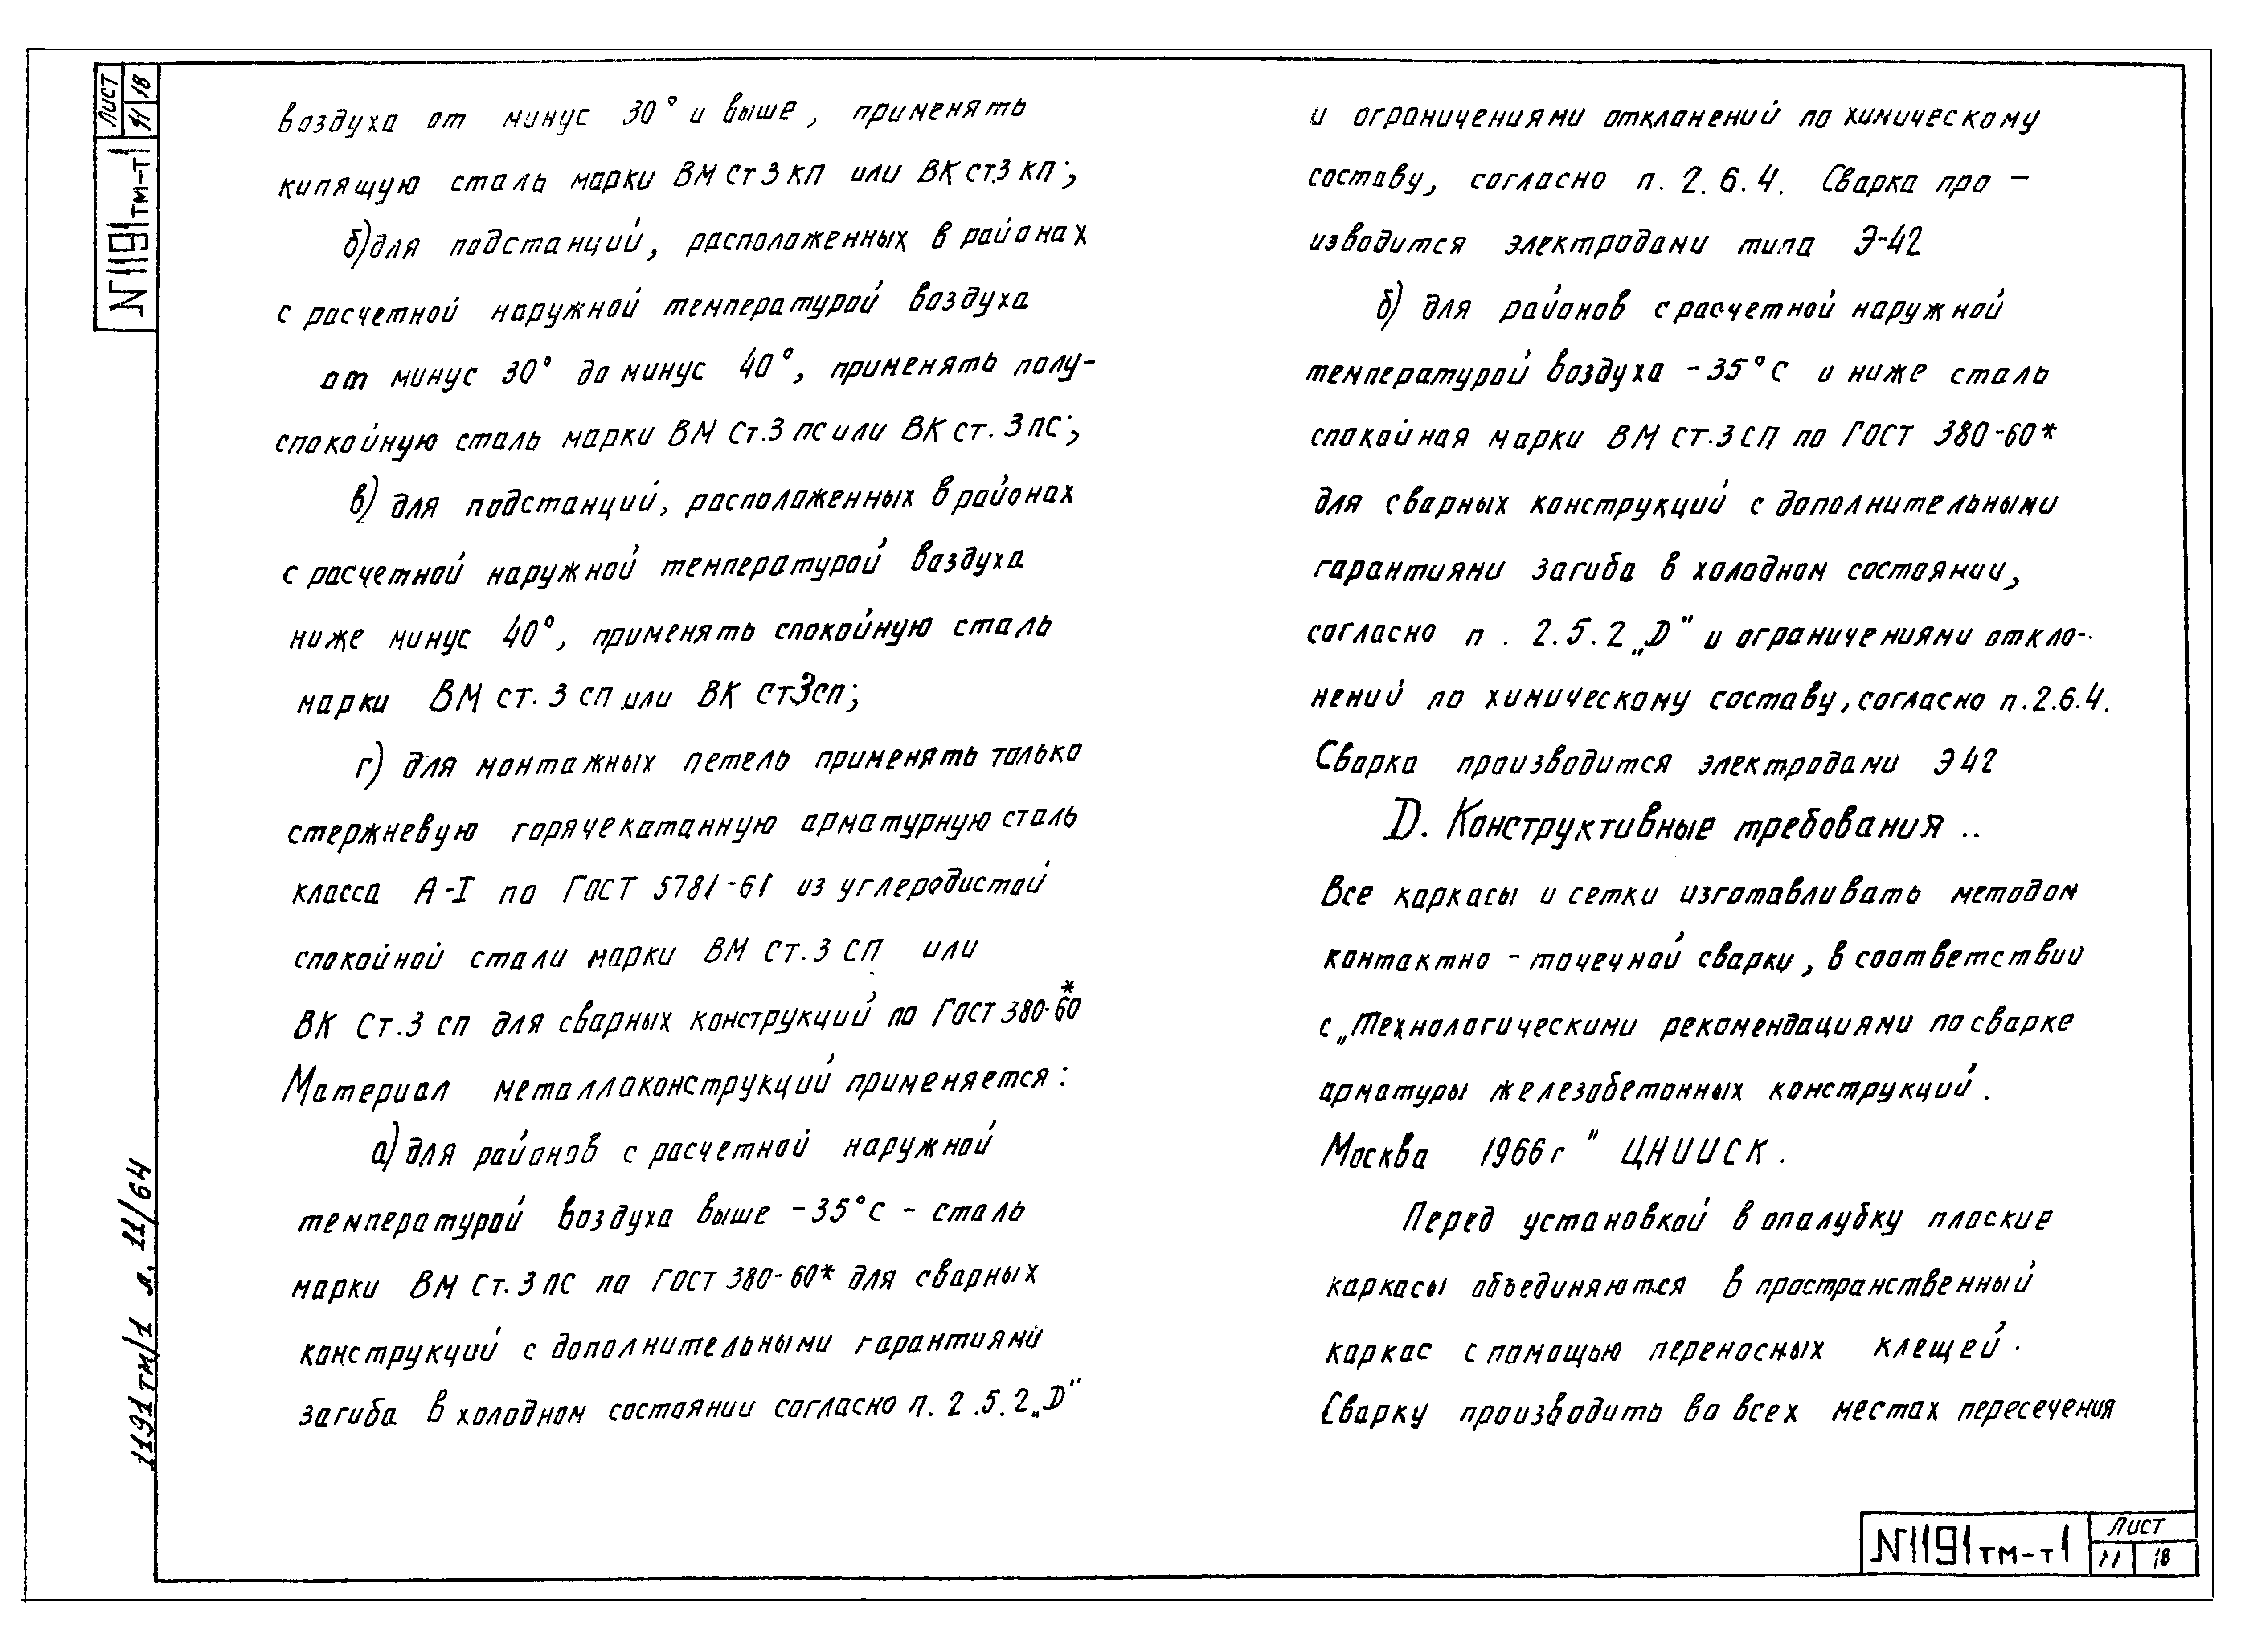 Лист
11 18
N1191тм-т1
воздуха от минус 30° и выше, применять
кипящую сталь марки ВМ Ст 3 кп или ВК ст.3 кп;
б) для подстанций, расположенных в районах
с расчетной наружной температурой воздуха
от минус 30° до минус 40°, применять полу-
спокойную сталь марки ВМ Ст.3 пс или ВК ст. 3 пс;
в) для подстанций, расположенных в районах
с расчетной наружной температурой воздуха
ниже минус 40°, применять спокойную сталь
марки ВМ ст. 3 сп или ВК Ст3сп;
г) для монтажных петель применять только
стержневую горячекатанную арматурную сталь
класса А-I по ГОСТ 5781-61 из углеродистой
спокойной стали марки ВМ Ст.3 сп или
ВК Ст.3 сп для сварных конструкций по ГОСТ 380-60*
Материал металлоконструкций применяется:
а) для районов с расчетной наружной
температурой воздуха выше -35°С - сталь
марки ВМ Ст.3 пс по ГОСТ 380-60* для сварных
конструкций с дополнительными гарантиями
загиба в холодном состоянии согласно п. 2.5.2 „D"
1191тм/1 л. 11/64
и ограничениями отклонений по химическому
составу, согласно п. 2.6.4. Сварка про-
изводится электродами типа Э-42
б) для районов с расчетной наружной
температурой воздуха -35°С и ниже сталь
спокойная марки ВМ Ст.3 СП по ГОСТ 380-60*
для сварных конструкций с дополнительными
гарантиями загиба в холодном состоянии,
согласно п. 2.5.2 „D" и ограничениями откло-
нений по химическому составу, согласно п.2.6.4.
Сварка производится электродами Э42
D. Конструктивные требования..
Все каркасы и сетки изготавливать методом
контактно-точечной сварки, в соответствии
с „Технологическими рекомендациями по сварке
арматуры железобетонных конструкций.
Москва 1966г" ЦНИИСК.
Перед установкой в опалубку плоские
каркасы объединяются в пространственный
каркас с помощью переносных клещей.
Сварку производить во всех местах пересечения
N1191тм-т1
Лист
11 18